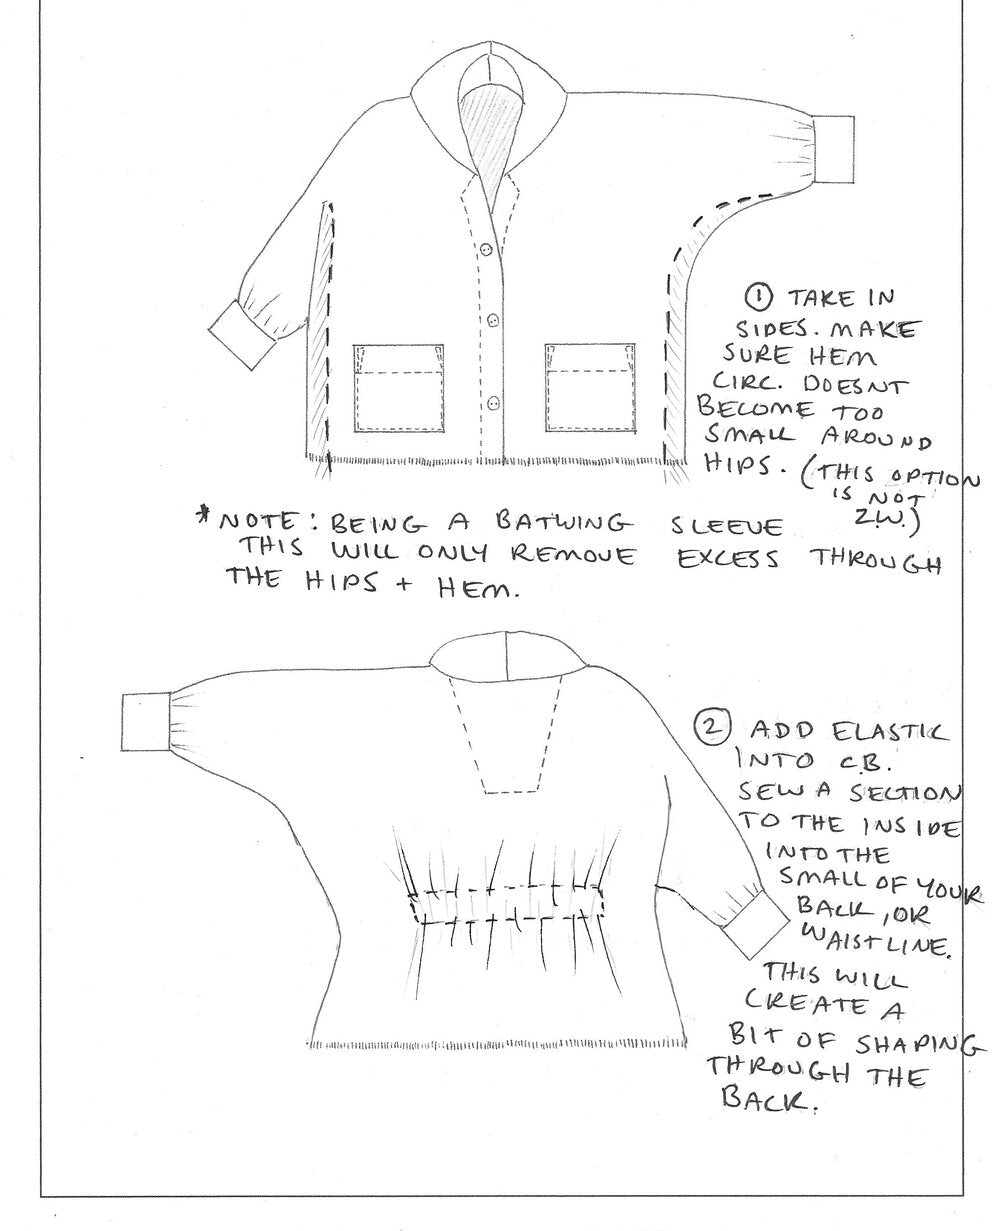 ① TAKE IN
SIDES. MAKE
SURE HEM
CIRC. DOESNT
BECOME TOO
SMALL AROUND
HIPS. (THIS OPTION
IS NOT
Z.W.)
*NOTE: BEING A BATWING SLEEVE
THIS WILL ONLY REMOVE EXCESS THROUGH
THE HIPS + HEM.
② ADD ELASTIC
INTO C.B.
SEW A SECTION
TO THE INSIDE
INTO THE
SMALL OF YOUR
BACK, OR
WAISTLINE.
THIS WILL
CREATE A
BIT OF SHAPING
THROUGH THE
BACK.